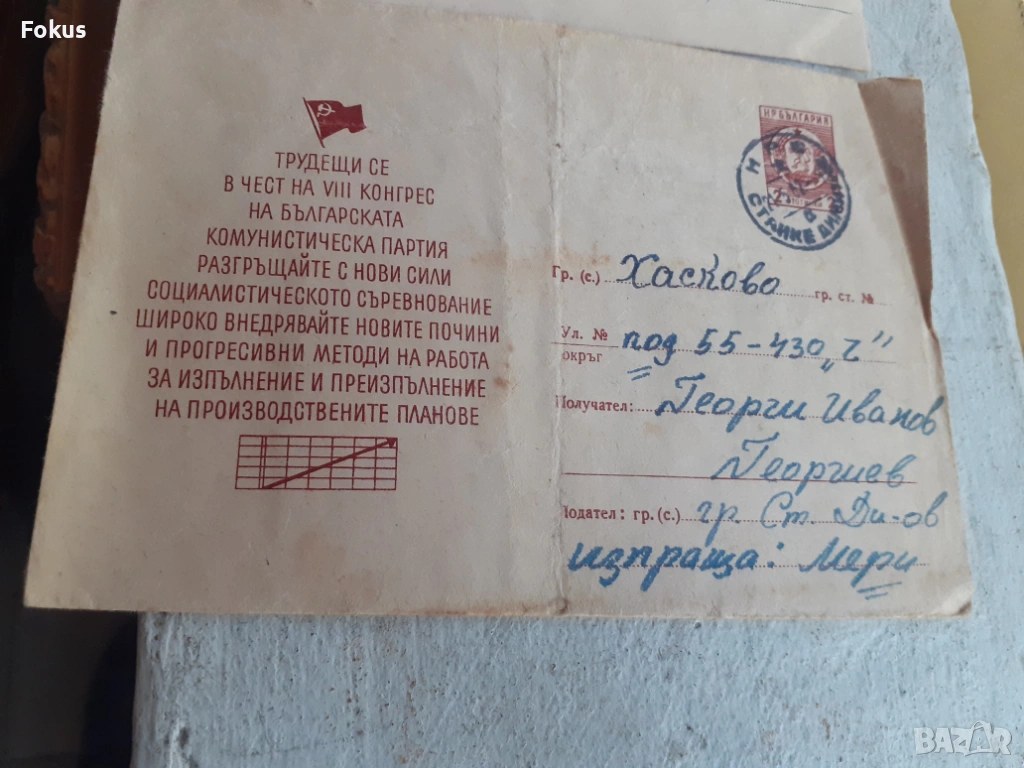 Fokus
ТРУДЕЩИ СЕ
В ЧЕСТ НА VIII КОНГРЕС
НА БЪЛГАРСКАТА
КОМУНИСТИЧЕСКА ПАРТИЯ
РАЗГРЪЩАЙТЕ С НОВИ СИЛИ
СОЦИАЛИСТИЧЕСКОТО СЪРЕВНОВАНИЕ
ШИРОКО ВНЕДРЯВАЙТЕ НОВИТЕ ПОЧИНИ
И ПРОГРЕСИВНИ МЕТОДИ НА РАБОТА
ЗА ИЗПЪЛНЕНИЕ И ПРЕИЗПЪЛНЕНИЕ
НА ПРОИЗВОДСТВЕНИТЕ ПЛАНОВЕ
НР БЪЛГАРИЯ
СТАНКЕ
Гр. (с.) Хасково гр. ст. №
Ул. № под 55-430 „Г"
окръг
Получател: Георги Иванов
Георгиев
Подател: гр. (с.) гр. Ст. Ди-ов
изпраща: Мери
BAZAR